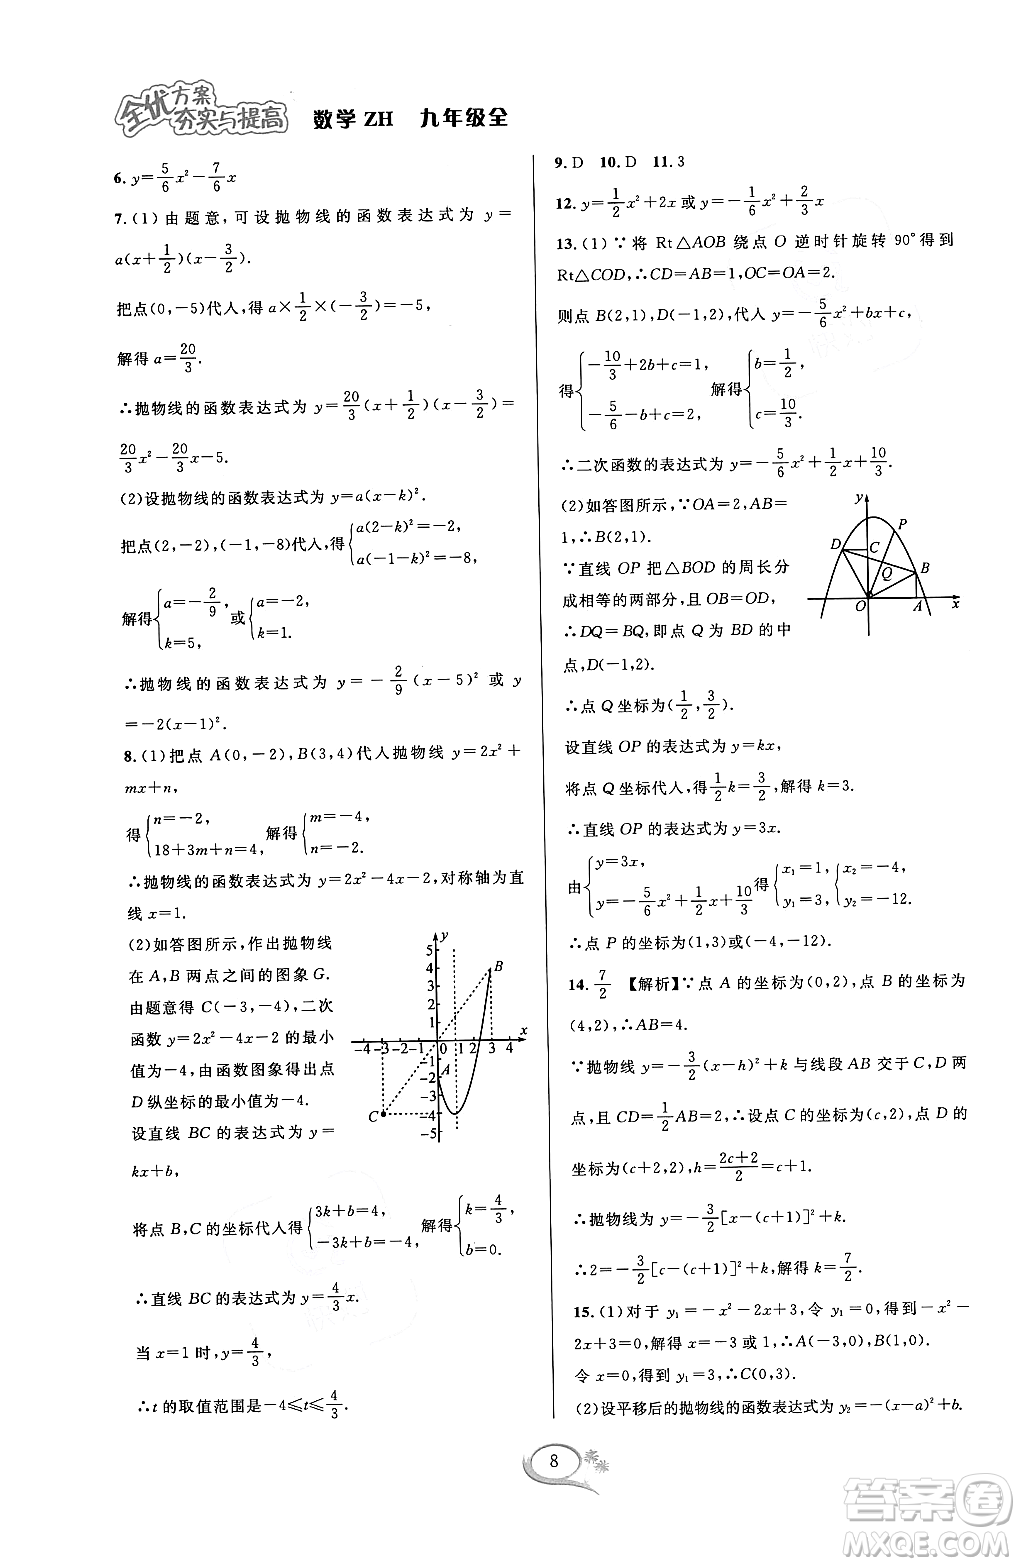 全优方案
夯实与提高 数学ZH 九年级全
6. y=5/6x²-7/6x
7.(1)由题意,可设抛物线的函数表达式为 y=
a(x+1/2)(x-3/2).
把点(0,-5)代人,得 a×1/2×(-3/2)=-5,
解得 a=20/3.
∴抛物线的函数表达式为 y=20/3(x+1/2)(x-3/2)=
20/3x²-20/3x-5.
(2)设抛物线的函数表达式为 y=a(x-k)².
把点(2,-2),(-1,-8)代人,得{a(2-k)²=-2, a(-1-k)²=-8,
解得{a=-2/9, k=5, 或{a=-2, k=1.
∴抛物线的函数表达式为 y=-2/9(x-5)² 或 y
=-2(x-1)².
8.(1)把点 A(0,-2),B(3,4)代人抛物线 y=2x²+
mx+n,
得{n=-2, 18+3m+n=4, 解得{m=-4, n=-2.
∴抛物线的函数表达式为 y=2x²-4x-2,对称轴为直
线 x=1.
(2)如答图所示,作出抛物线
在 A,B 两点之间的图象 G.
由题意得 C(-3,-4),二次
函数 y=2x²-4x-2 的最小
值为-4,由函数图象得出点
D 纵坐标的最小值为-4.
设直线 BC 的表达式为 y=
kx+b,
y
5
4
3
2
1
B
-4 -3 -2 -1 0 1 2 3 4 x
-1
A
-2
-3
-4
-5
C
将点 B,C 的坐标代人得{3k+b=4, -3k+b=-4, 解得{k=4/3, b=0.
∴直线 BC 的表达式为 y=4/3x.
当 x=1 时,y=4/3,
∴t 的取值范围是-4≤t≤4/3.
9. D 10. D 11. 3
12. y=1/2x²+2x 或 y=-1/6x²+2/3x
13.(1)∵将 Rt△AOB 绕点 O 逆时针旋转 90°得到
Rt△COD,∴CD=AB=1,OC=OA=2.
则点 B(2,1),D(-1,2),代人 y=-5/6x²+bx+c,
得{-10/3+2b+c=1, -5/6-b+c=2, 解得{b=1/2, c=10/3.
∴二次函数的表达式为 y=-5/6x²+1/2x+10/3.
(2)如答图所示,∵OA=2,AB=
1,∴B(2,1).
∵直线 OP 把△BOD 的周长分
成相等的两部分,且 OB=OD,
∴DQ=BQ,即点 Q 为 BD 的中
点,D(-1,2).
y
P
D C
Q B
O A x
∴点 Q 坐标为(1/2,3/2).
设直线 OP 的表达式为 y=kx,
将点 Q 坐标代人,得1/2k=3/2,解得 k=3.
∴直线 OP 的表达式为 y=3x.
由{y=3x, y=-5/6x²+1/2x+10/3 得{x₁=1, y₁=3, {x₂=-4, y₂=-12.
∴点 P 的坐标为(1,3)或(-4,-12).
14. 7/2 【解析】∵点 A 的坐标为(0,2),点 B 的坐标为
(4,2),∴AB=4.
∵抛物线 y=-3/2(x-h)²+k 与线段 AB 交于 C,D 两
点,且 CD=1/2AB=2,∴设点 C 的坐标为(c,2),点 D 的
坐标为(c+2,2),h=(2c+2)/2=c+1.
∴抛物线为 y=-3/2[x-(c+1)]²+k.
∴2=-3/2[c-(c+1)]²+k,解得 k=7/2.
15.(1)对于 y₁=-x²-2x+3,令 y₁=0,得到-x²-
2x+3=0,解得 x=-3 或 1,∴A(-3,0),B(1,0).
令 x=0,得到 y₁=3,∴C(0,3).
(2)设平移后的抛物线的函数表达式为 y₂=-(x-a)²+b.
8
答案圈
MXQE.COM